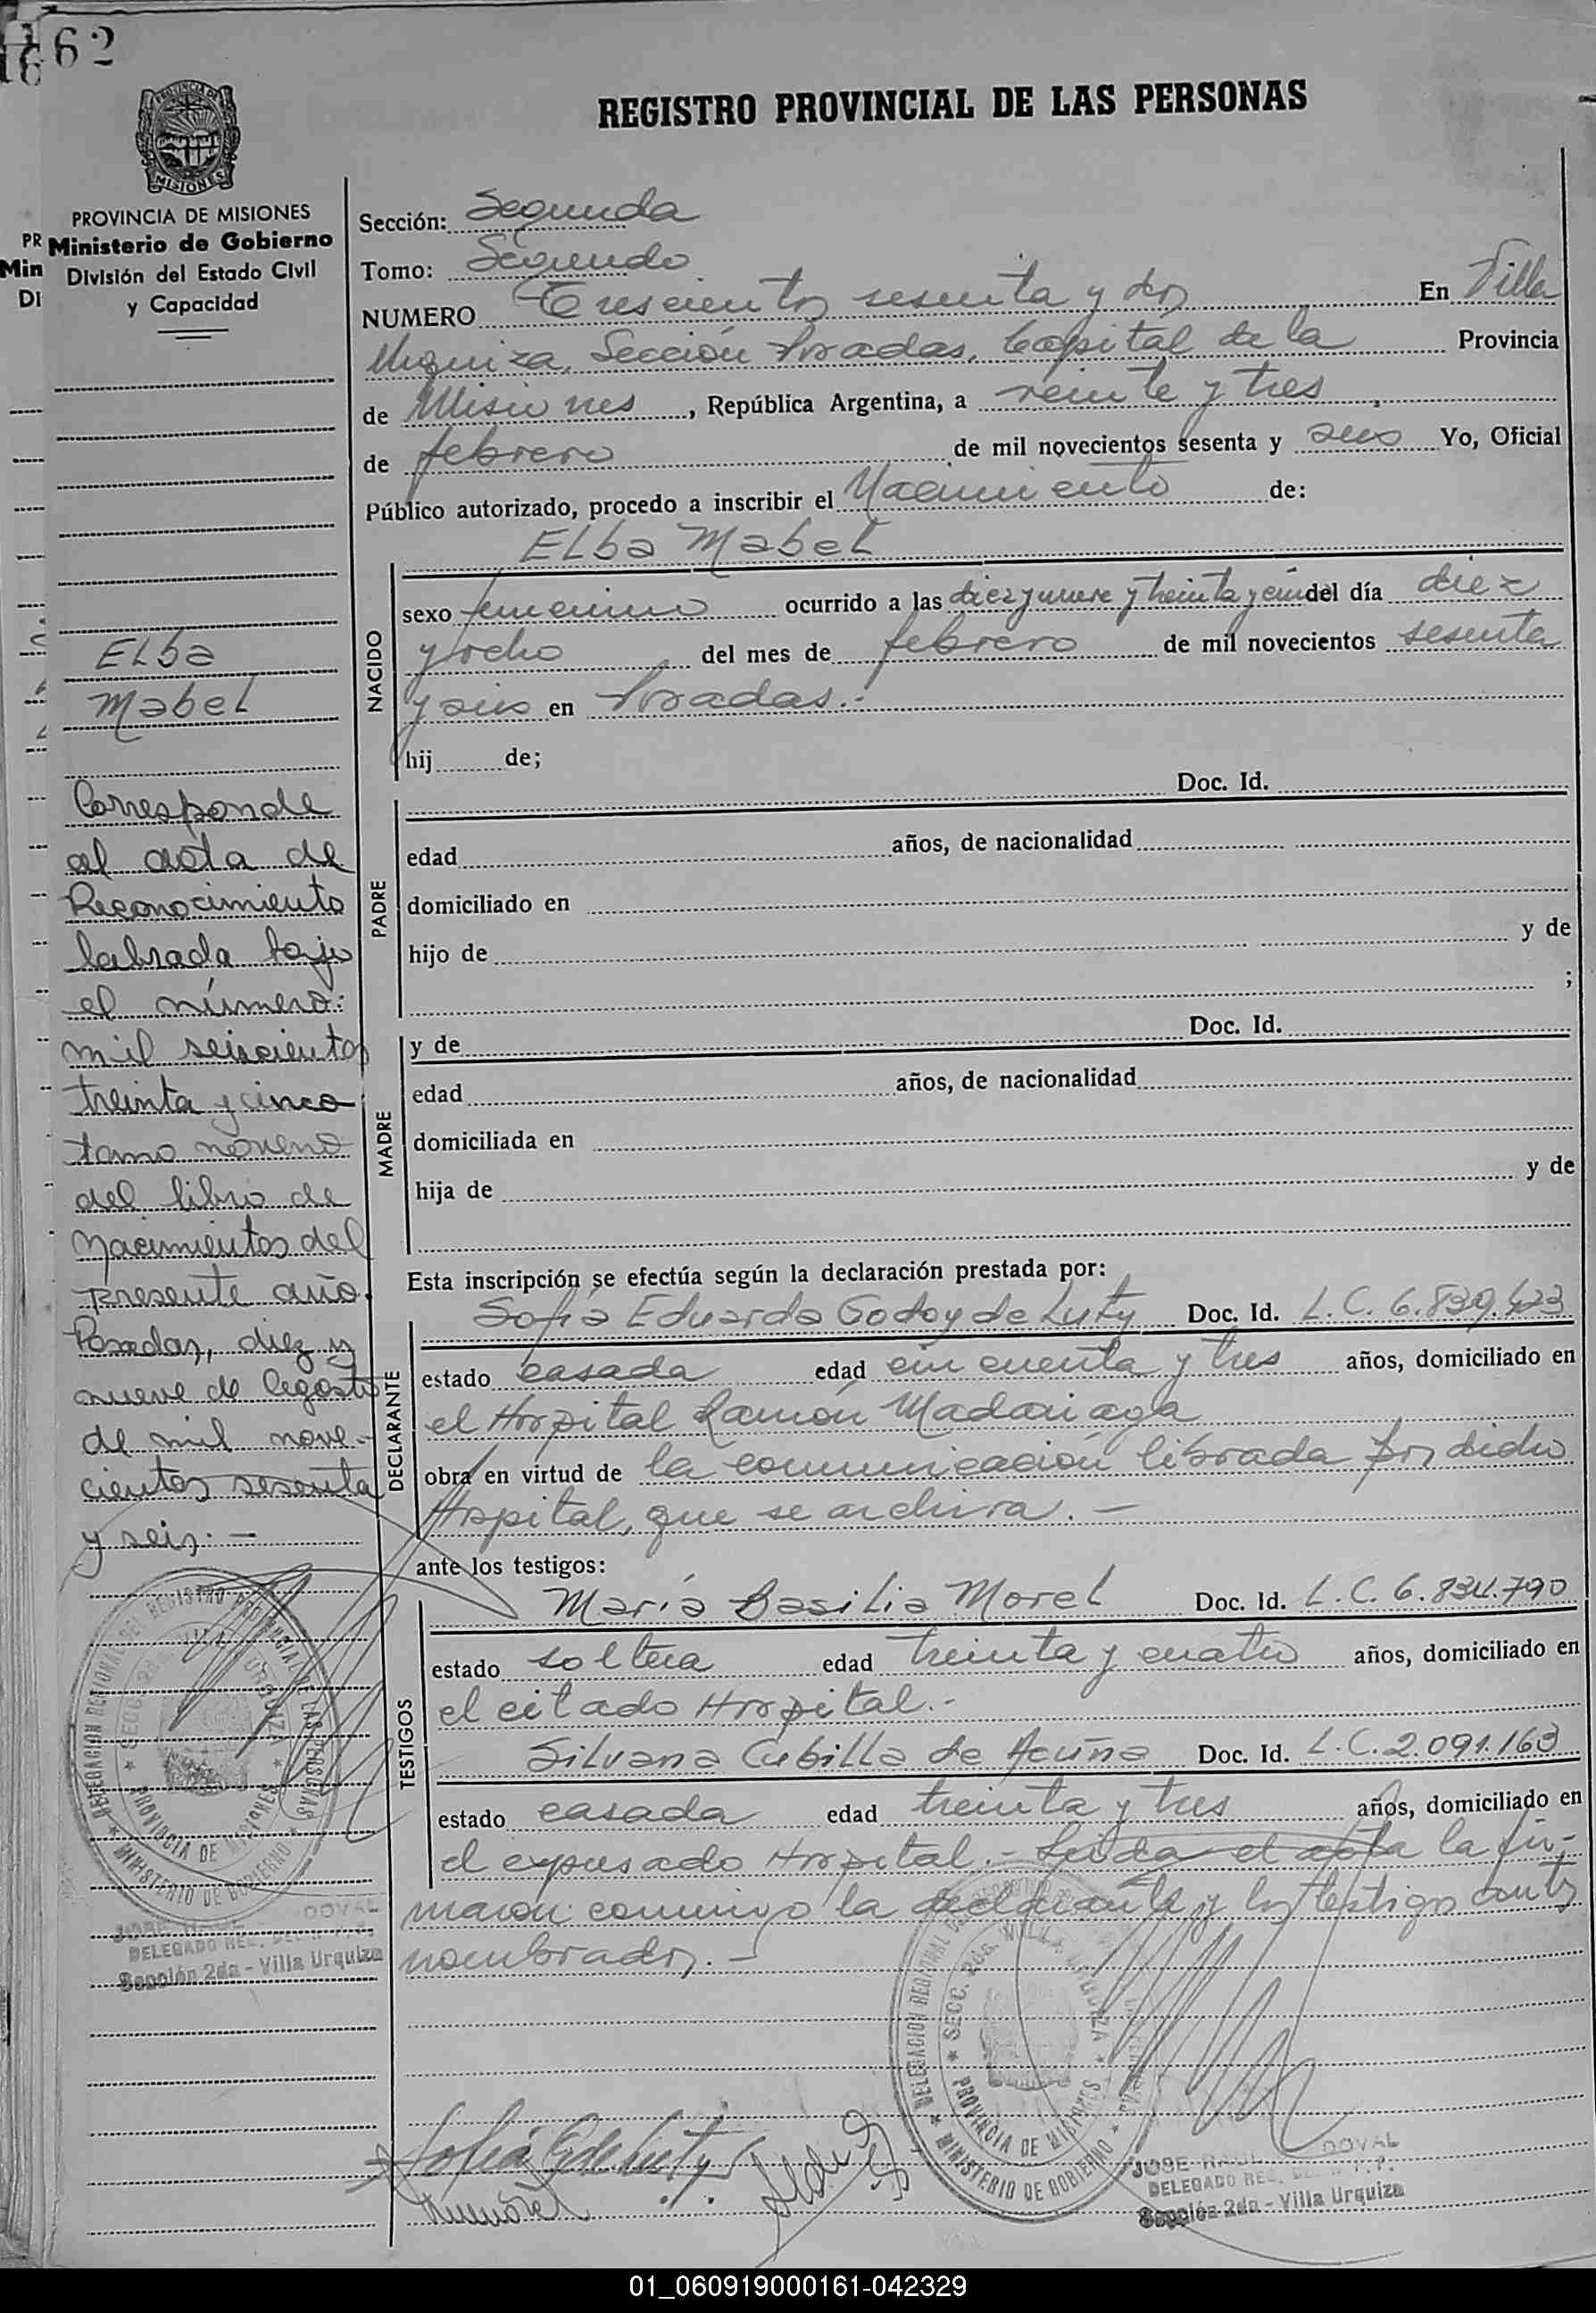 62
PROVINCIA DE MISIONES
Ministerio de Gobierno
División del Estado Civil
y Capacidad
REGISTRO PROVINCIAL DE LAS PERSONAS
Sección: Segunda
Tomo: Segundo
NUMERO Trescientos sesenta y dos En Villa
Urquiza, Sección Posadas, Capital de la Provincia
de Misiones, República Argentina, a veinte y tres
de febrero de mil novecientos sesenta y seis Yo, Oficial
Público autorizado, procedo a inscribir el Nacimiento de:
Elba Mabel
NACIDO
sexo femenino ocurrido a las diez y nueve y treinta y cin del día diez
y ocho del mes de febrero de mil novecientos sesenta
y seis en Posadas.-
hij de;
PADRE
Doc. Id.
edad años, de nacionalidad
domiciliado en
hijo de y de
;
MADRE
y de Doc. Id.
edad años, de nacionalidad
domiciliada en
hija de y de
Esta inscripción se efectúa según la declaración prestada por:
DECLARANTE
Sofia Eduarda Godoy de Luty Doc. Id. L.C. 6.839.423
estado casada edad cincuenta y tres años, domiciliado en
el Hospital Ramón Madariaga
obra en virtud de la comunicación librada por dicho
Hospital, que se archiva.-
ante los testigos:
TESTIGOS
María Basilia Morel Doc. Id. L.C. 6.834.790
estado soltera edad treinta y cuatro años, domiciliado en
el citado Hospital.-
Silvana Cubilla de Acuña Doc. Id. L.C. 2.091.163
estado casada edad treinta y tres años, domiciliado en
el expresado Hospital.- Leida el acta la fir-
maron conmigo la declarante y los testigos antes
nombrados.-
Elba
Mabel
Corresponde
al acta de
Reconocimiento
labrada bajo
el número:
mil seiscientos
treinta y cinco
tomo noveno
del libro de
Nacimientos del
presente año.
Posadas, diez y
nueve de Agosto
de mil nove-
cientos sesenta
y seis.-
DELEGACION REGIONAL DEL REGISTRO PROVINCIAL DE LAS PERSONAS
PROVINCIA DE MISIONES
MINISTERIO DE GOBIERNO
JOSE DOVAL
DELEGADO REG.
Sección 2da - Villa Urquiza
DELEGACION REGIONAL
SECC. 2da. VILLA URQUIZA
PROVINCIA DE MISIONES
MINISTERIO DE GOBIERNO
JOSE RAUL DOVAL
DELEGADO REG.
Sección 2da - Villa Urquiza
01_060919000161-042329